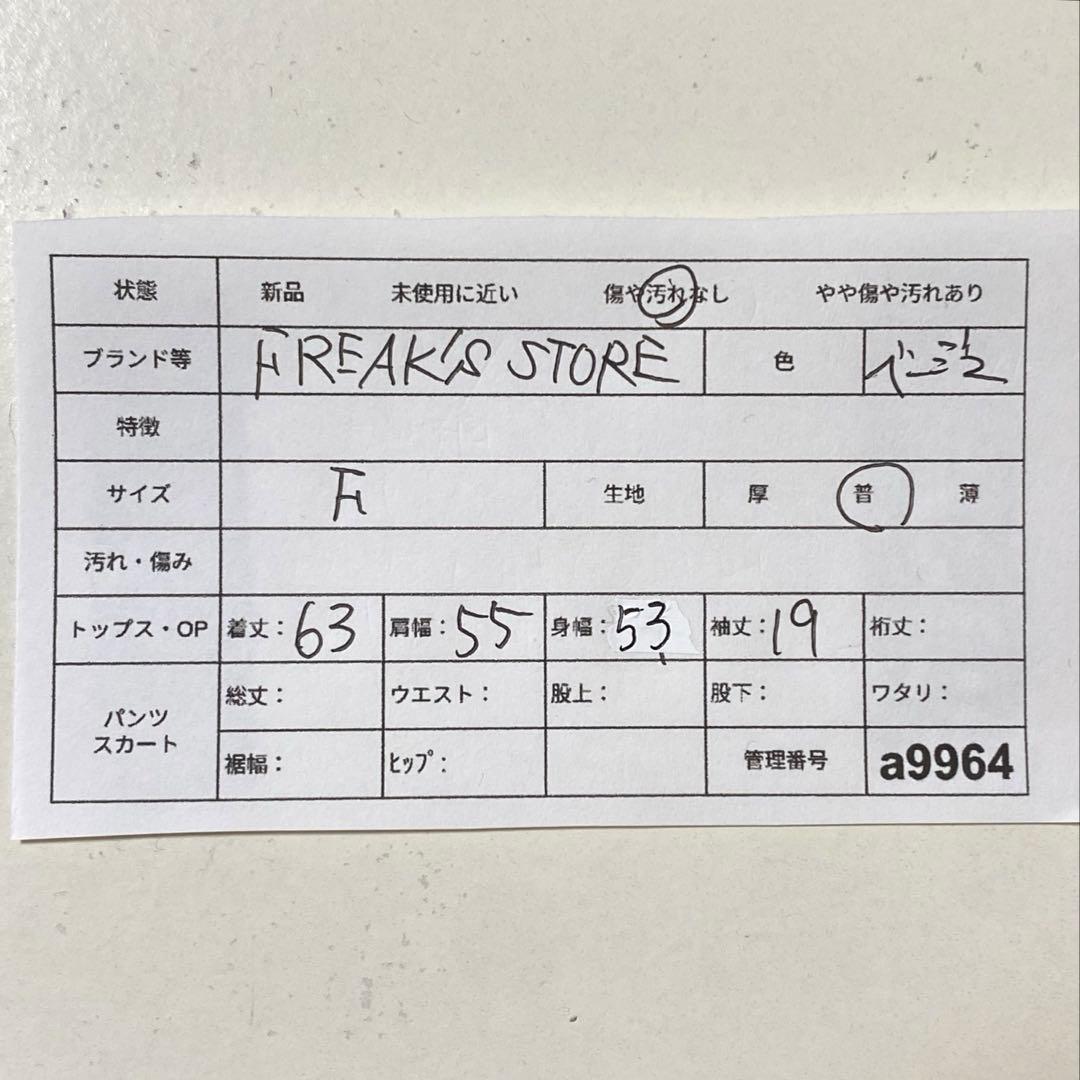 状態 新品 未使用に近い 傷や汚れなし やや傷や汚れあり
ブランド等 FREAK'S STORE 色 ベージュ
特徴
サイズ F 生地 厚 普 薄
汚れ・傷み
トップス・OP 着丈：63 肩幅：55 身幅：53 袖丈：19 裄丈：
パンツ スカート 総丈： ウエスト： 股上： 股下： ワタリ：
裾幅： ﾋｯﾌﾟ： 管理番号 a9964